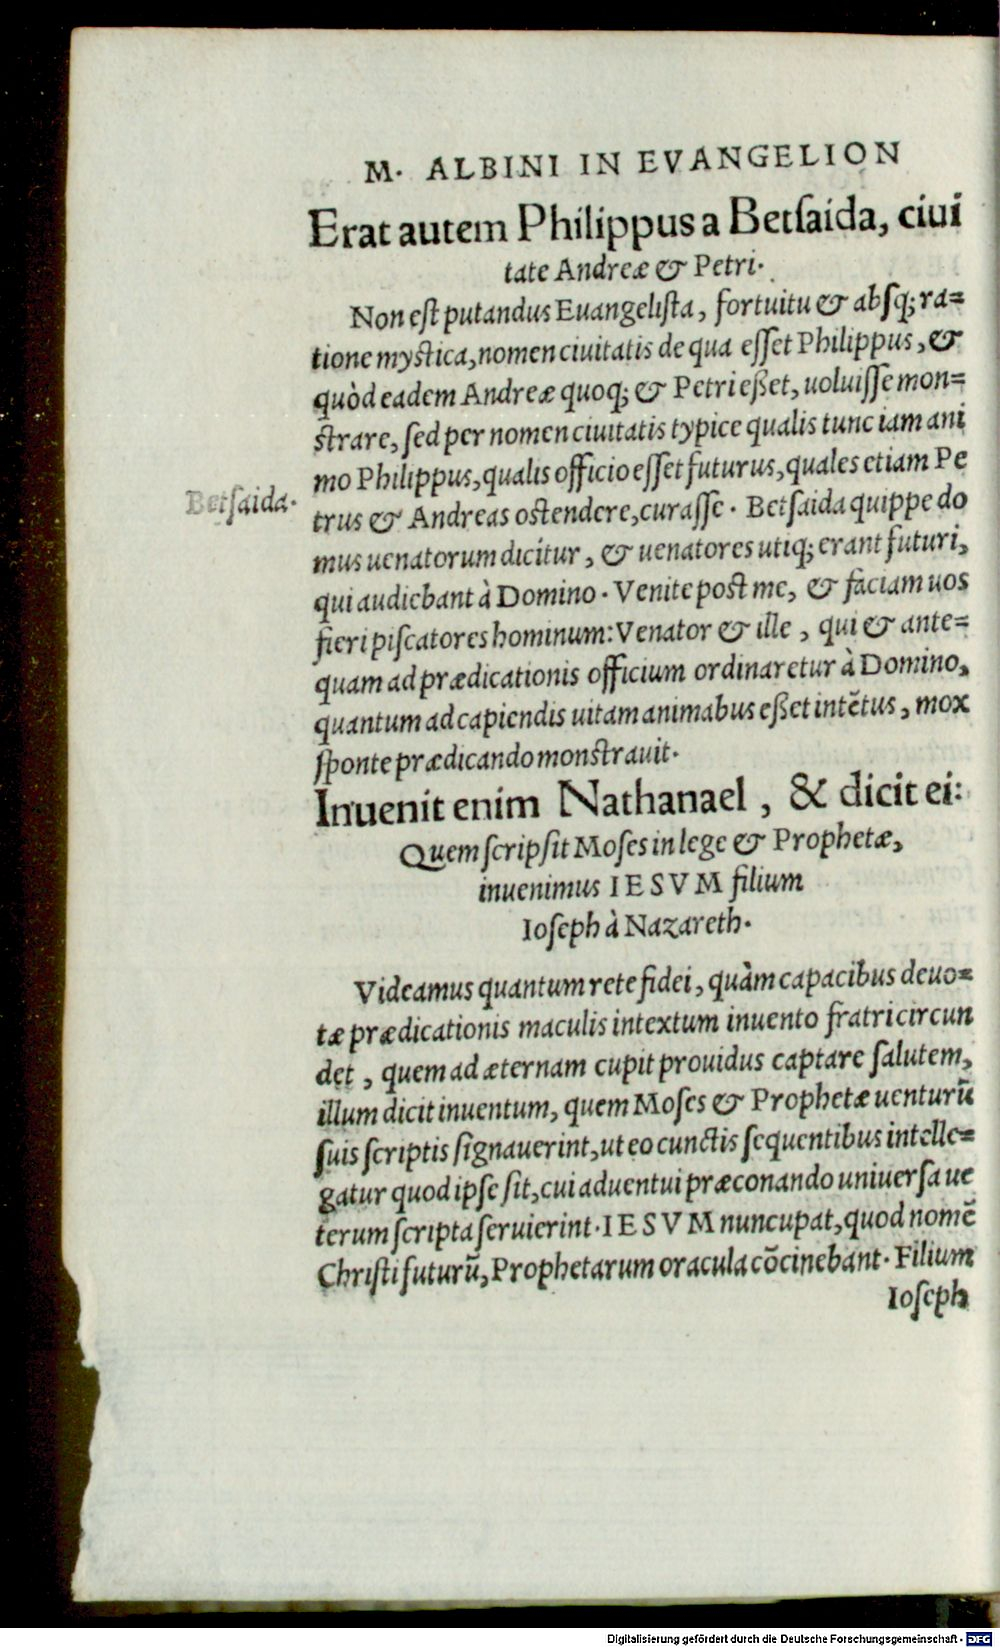 M. ALBINI IN EVANGELION
Erat autem Philippus a Betſaida, ciui
tate Andreæ & Petri.
Non eſt putandus Euangeliſta, fortuitu & abſq; ra=
tione myſtica, nomen ciuitatis de qua eſſet Philippus, &
quòd eadem Andreæ quoq; & Petri eßet, uoluiſſe mon=
ſtrare, ſed per nomen ciuitatis typice qualis tunc iam ani
mo Philippus, qualis officio eſſet futurus, quales etiam Pe
Betſaida.
trus & Andreas oſtendere, curaſſe. Betſaida quippe do
mus uenatorum dicitur, & uenatores utiq; erant futuri,
qui audiebant à Domino. Venite poſt me, & faciam uos
fieri piſcatores hominum: Venator & ille, qui & ante=
quam ad prædicationis officium ordinaretur à Domino,
quantum ad capiendis uitam animabus eßet intētus, mox
ſponte prædicando monſtrauit.
Inuenit enim Nathanael, & dicit ei:
Quem ſcripſit Moſes in lege & Prophetæ,
inuenimus IESVM filium
Ioſeph à Nazareth.
Videamus quantum rete fidei, quàm capacibus deuo=
tæ prædicationis maculis intextum inuento fratri circun
det, quem ad æternam cupit prouidus captare ſalutem,
illum dicit inuentum, quem Moſes & Prophetæ uenturū
ſuis ſcriptis ſignauerint, ut eo cunctis ſequentibus intelle=
gatur quod ipſe ſit, cui aduentui præconando uniuerſa ue
terum ſcripta ſeruierint. IESVM nuncupat, quod nomē
Chriſti futurū, Prophetarum oracula cōcinebant. Filium
Ioſeph
Digitalisierung gefördert durch die Deutsche Forschungsgemeinschaft - DFG